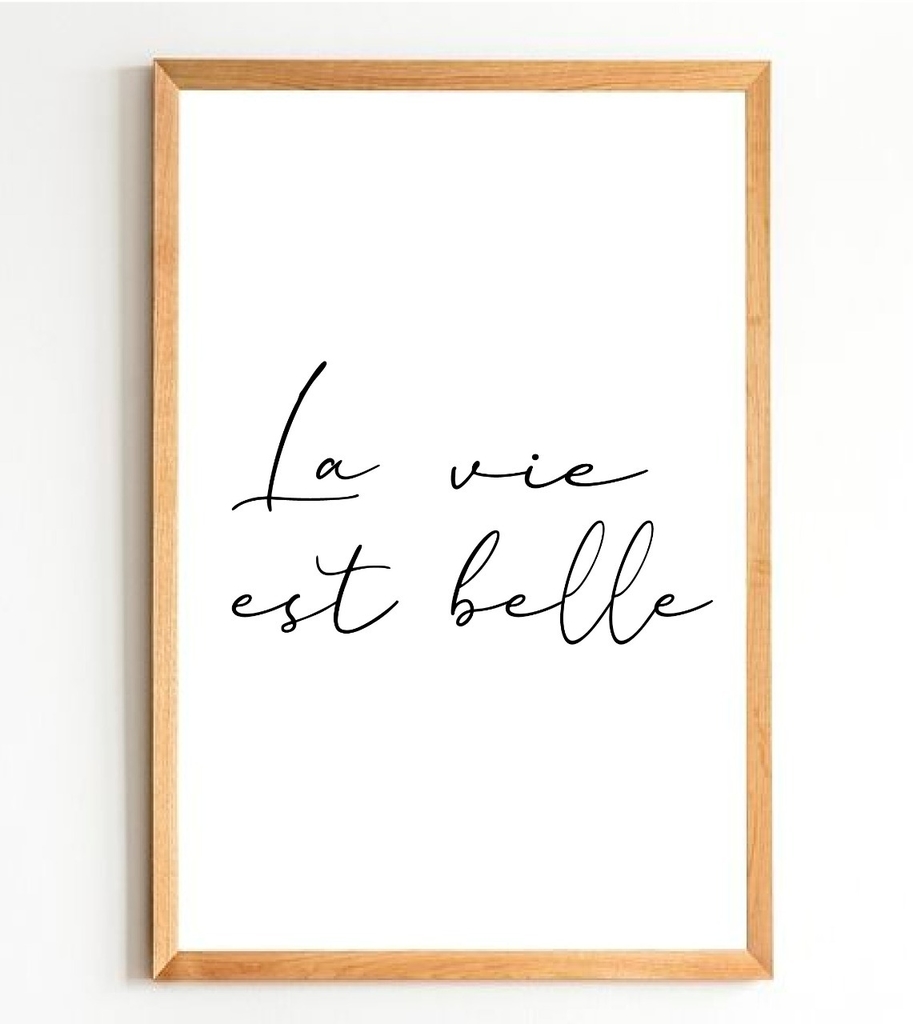 La vie
est belle